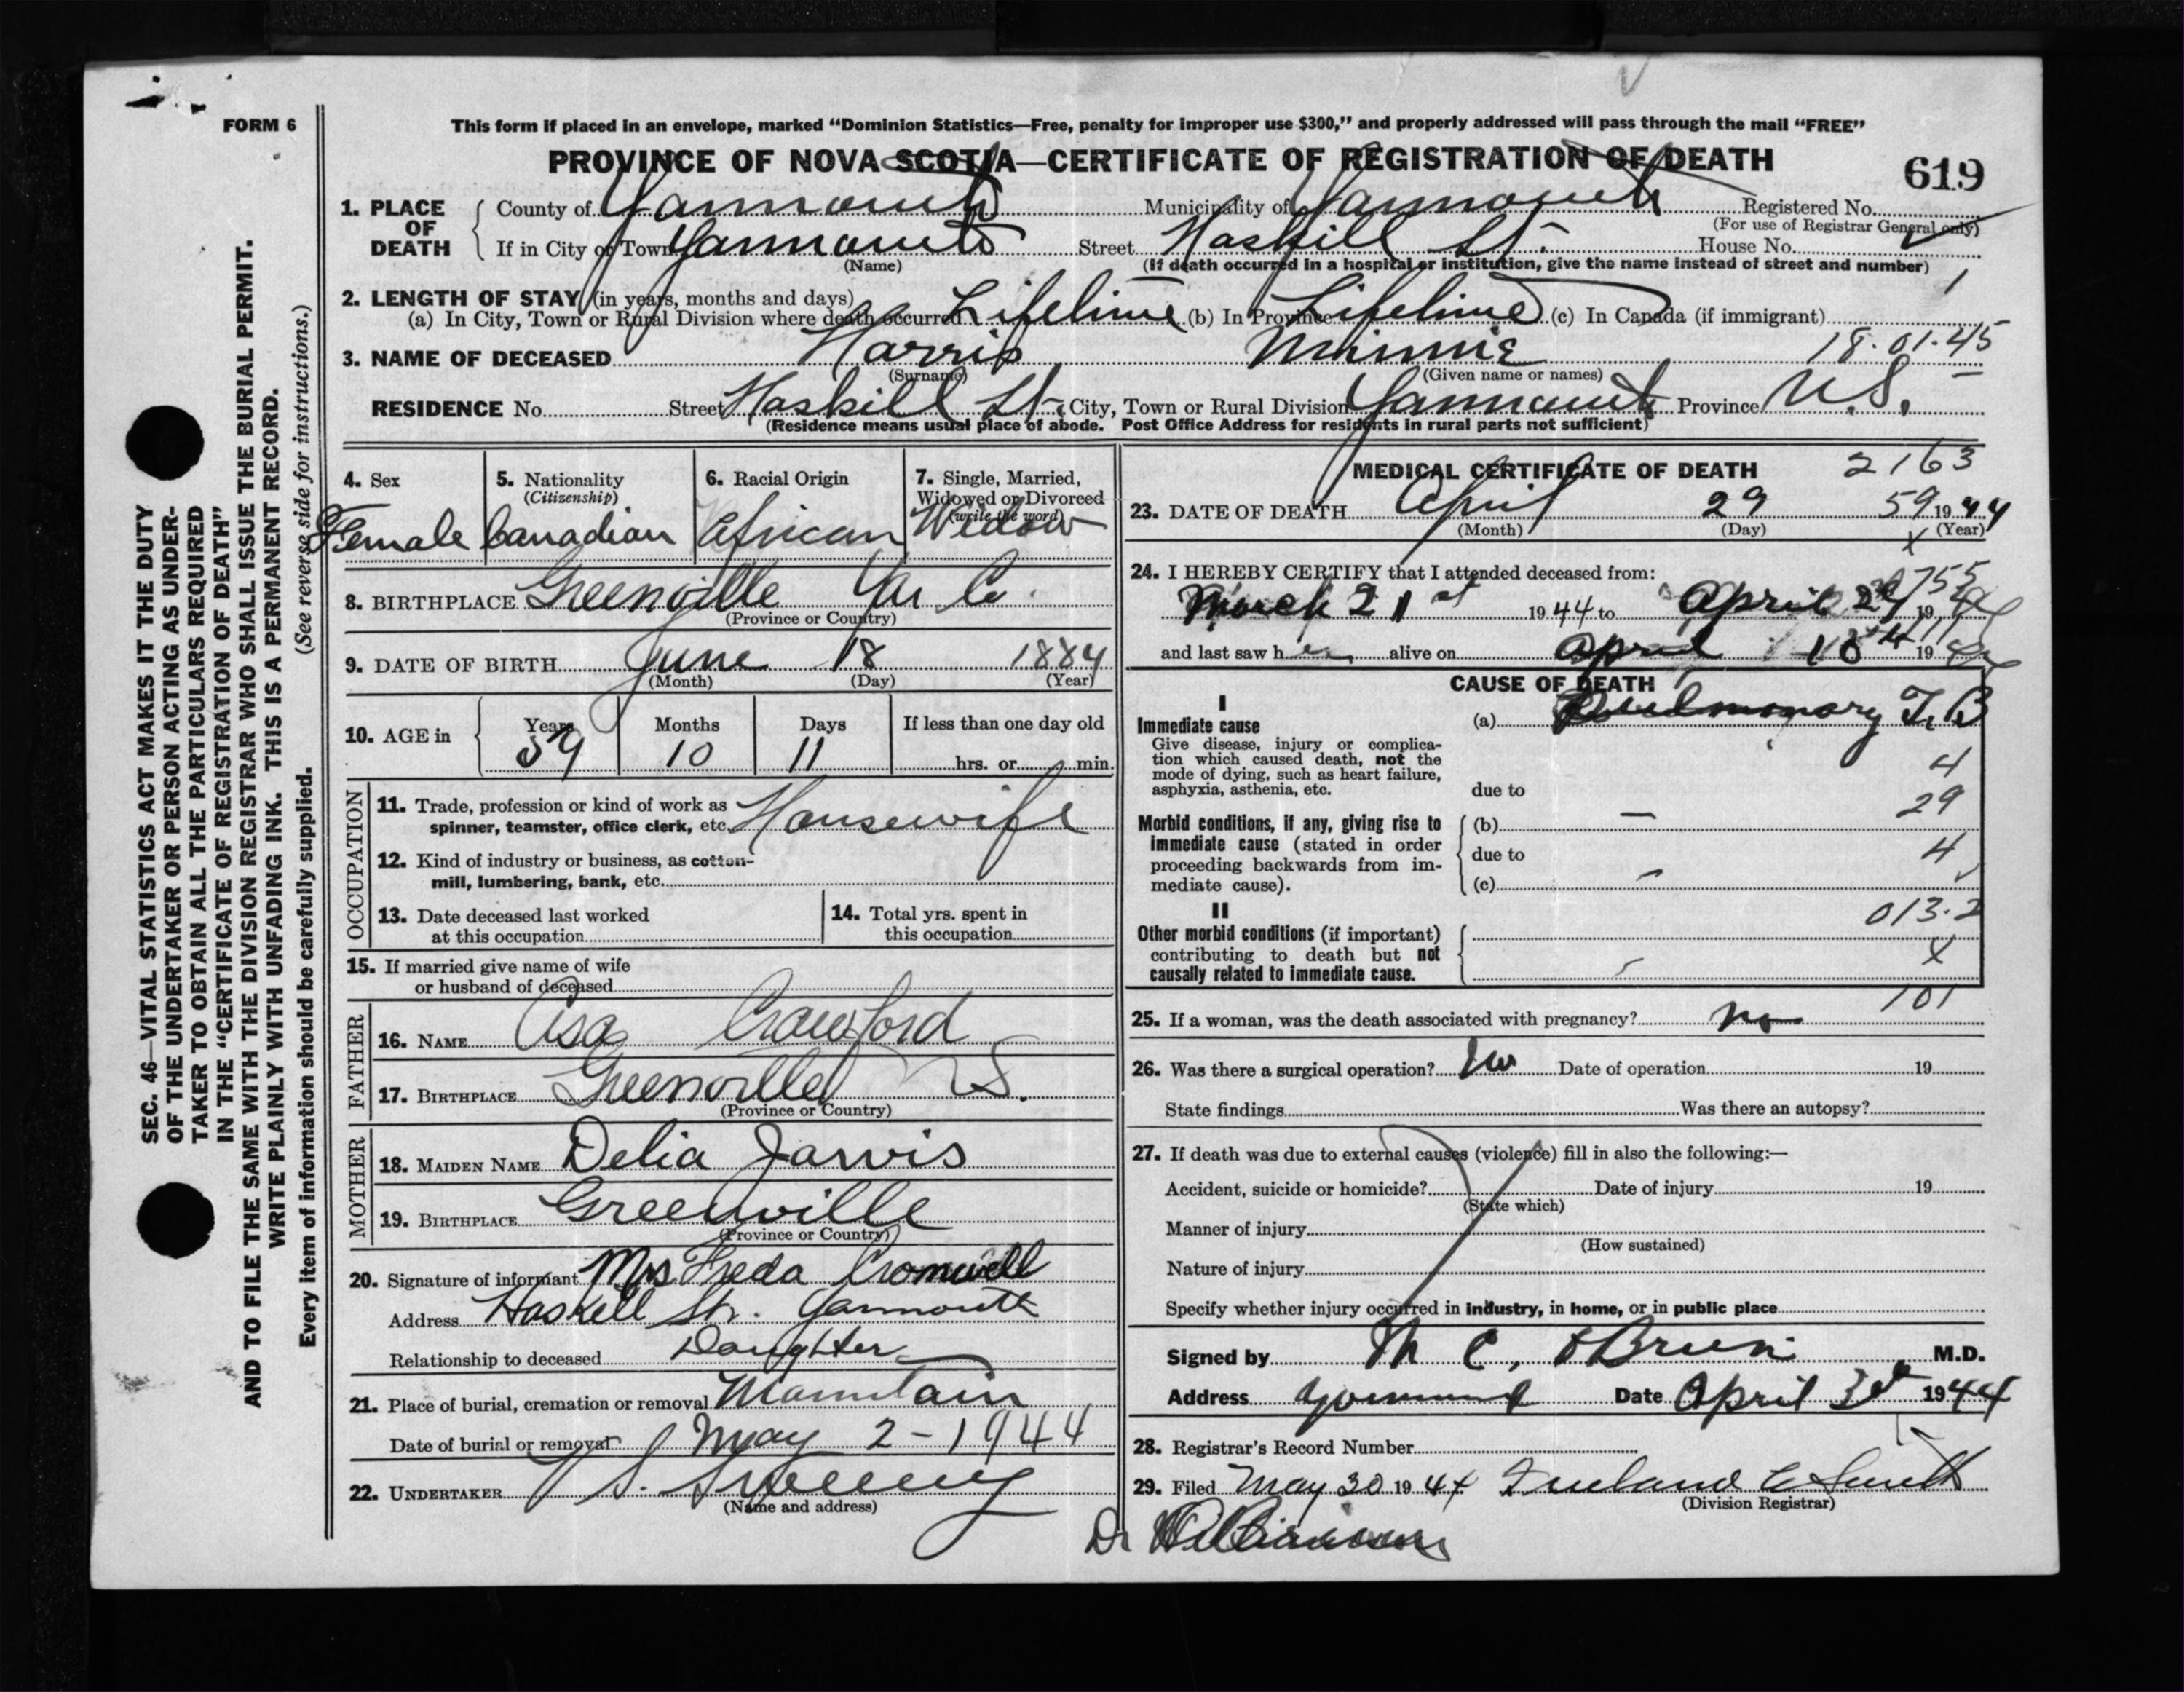 FORM 6
This form if placed in an envelope, marked “Dominion Statistics—Free, penalty for improper use $300,” and properly addressed will pass through the mail “FREE”
PROVINCE OF NOVA SCOTIA—CERTIFICATE OF REGISTRATION OF DEATH
619
1. PLACE OF DEATH
County of Yarmouth Municipality of Yarmouth Registered No.
(For use of Registrar General only)
If in City or Town Yarmouth Street Haskill St. House No.
(Name) (If death occurred in a hospital or institution, give the name instead of street and number)
1
2. LENGTH OF STAY (in years, months and days)
(a) In City, Town or Rural Division where death occurred Lifelime (b) In Province Lifelime (c) In Canada (if immigrant)
3. NAME OF DECEASED Harris Minnie 18.01.45
(Surname) (Given name or names)
RESIDENCE No. Street Haskill St. City, Town or Rural Division Yarmouth Province N.S.
(Residence means usual place of abode. Post Office Address for residents in rural parts not sufficient)
4. Sex
Female
5. Nationality
(Citizenship)
Canadian
6. Racial Origin
African
7. Single, Married,
Widowed or Divorced
(write the word)
Widow
8. BIRTHPLACE Greenville Yar Co.
(Province or Country)
9. DATE OF BIRTH June 18 1884
(Month) (Day) (Year)
10. AGE in
Years Months Days If less than one day old
59 10 11 hrs. or min.
OCCUPATION
11. Trade, profession or kind of work as
spinner, teamster, office clerk, etc. Housewife
12. Kind of industry or business, as cotton-
mill, lumbering, bank, etc.
13. Date deceased last worked
at this occupation
14. Total yrs. spent in
this occupation
15. If married give name of wife
or husband of deceased
FATHER
16. NAME Asa Crawford
17. BIRTHPLACE Greenville N.S.
(Province or Country)
MOTHER
18. MAIDEN NAME Delia Jarvis
19. BIRTHPLACE Greenville
(Province or Country)
20. Signature of informant Mrs Freda Cromwell
Address Haskell St. Yarmouth
Relationship to deceased Daughter
21. Place of burial, cremation or removal Mountain
Date of burial or removal May 2 - 1944
22. UNDERTAKER V S. Sweeny
(Name and address)
MEDICAL CERTIFICATE OF DEATH 2163
23. DATE OF DEATH April 29 59 1944
(Month) (Day) (Year)
x
24. I HEREBY CERTIFY that I attended deceased from:
March 21st 1944 to April 29 1944
755
and last saw her alive on April 18th 1944
CAUSE OF DEATH
I
Immediate cause
Give disease, injury or complica-
tion which caused death, not the
mode of dying, such as heart failure,
asphyxia, asthenia, etc.
(a) Pulmonary T.B
4
due to
29
Morbid conditions, if any, giving rise to
immediate cause (stated in order
proceeding backwards from im-
mediate cause).
(b) —
due to
4
(c) —
II
013.2
Other morbid conditions (if important)
contributing to death but not
causally related to immediate cause.
X
101
25. If a woman, was the death associated with pregnancy? no
26. Was there a surgical operation? no Date of operation 19
State findings Was there an autopsy?
27. If death was due to external causes (violence) fill in also the following:—
Accident, suicide or homicide? Date of injury 19
(State which)
Manner of injury
(How sustained)
Nature of injury
Specify whether injury occurred in industry, in home, or in public place
Signed by M C. O'Brien M.D.
Address Yarmouth Date April 1944
28. Registrar's Record Number
29. Filed May 30 1944 Freeland C Smith
(Division Registrar)
Dr Williamson
SEC. 46—VITAL STATISTICS ACT MAKES IT THE DUTY
OF THE UNDERTAKER OR PERSON ACTING AS UNDER-
TAKER TO OBTAIN ALL THE PARTICULARS REQUIRED
IN THE “CERTIFICATE OF REGISTRATION OF DEATH”
AND TO FILE THE SAME WITH THE DIVISION REGISTRAR WHO SHALL ISSUE THE BURIAL PERMIT.
WRITE PLAINLY WITH UNFADING INK. THIS IS A PERMANENT RECORD.
Every item of information should be carefully supplied. (See reverse side for instructions.)